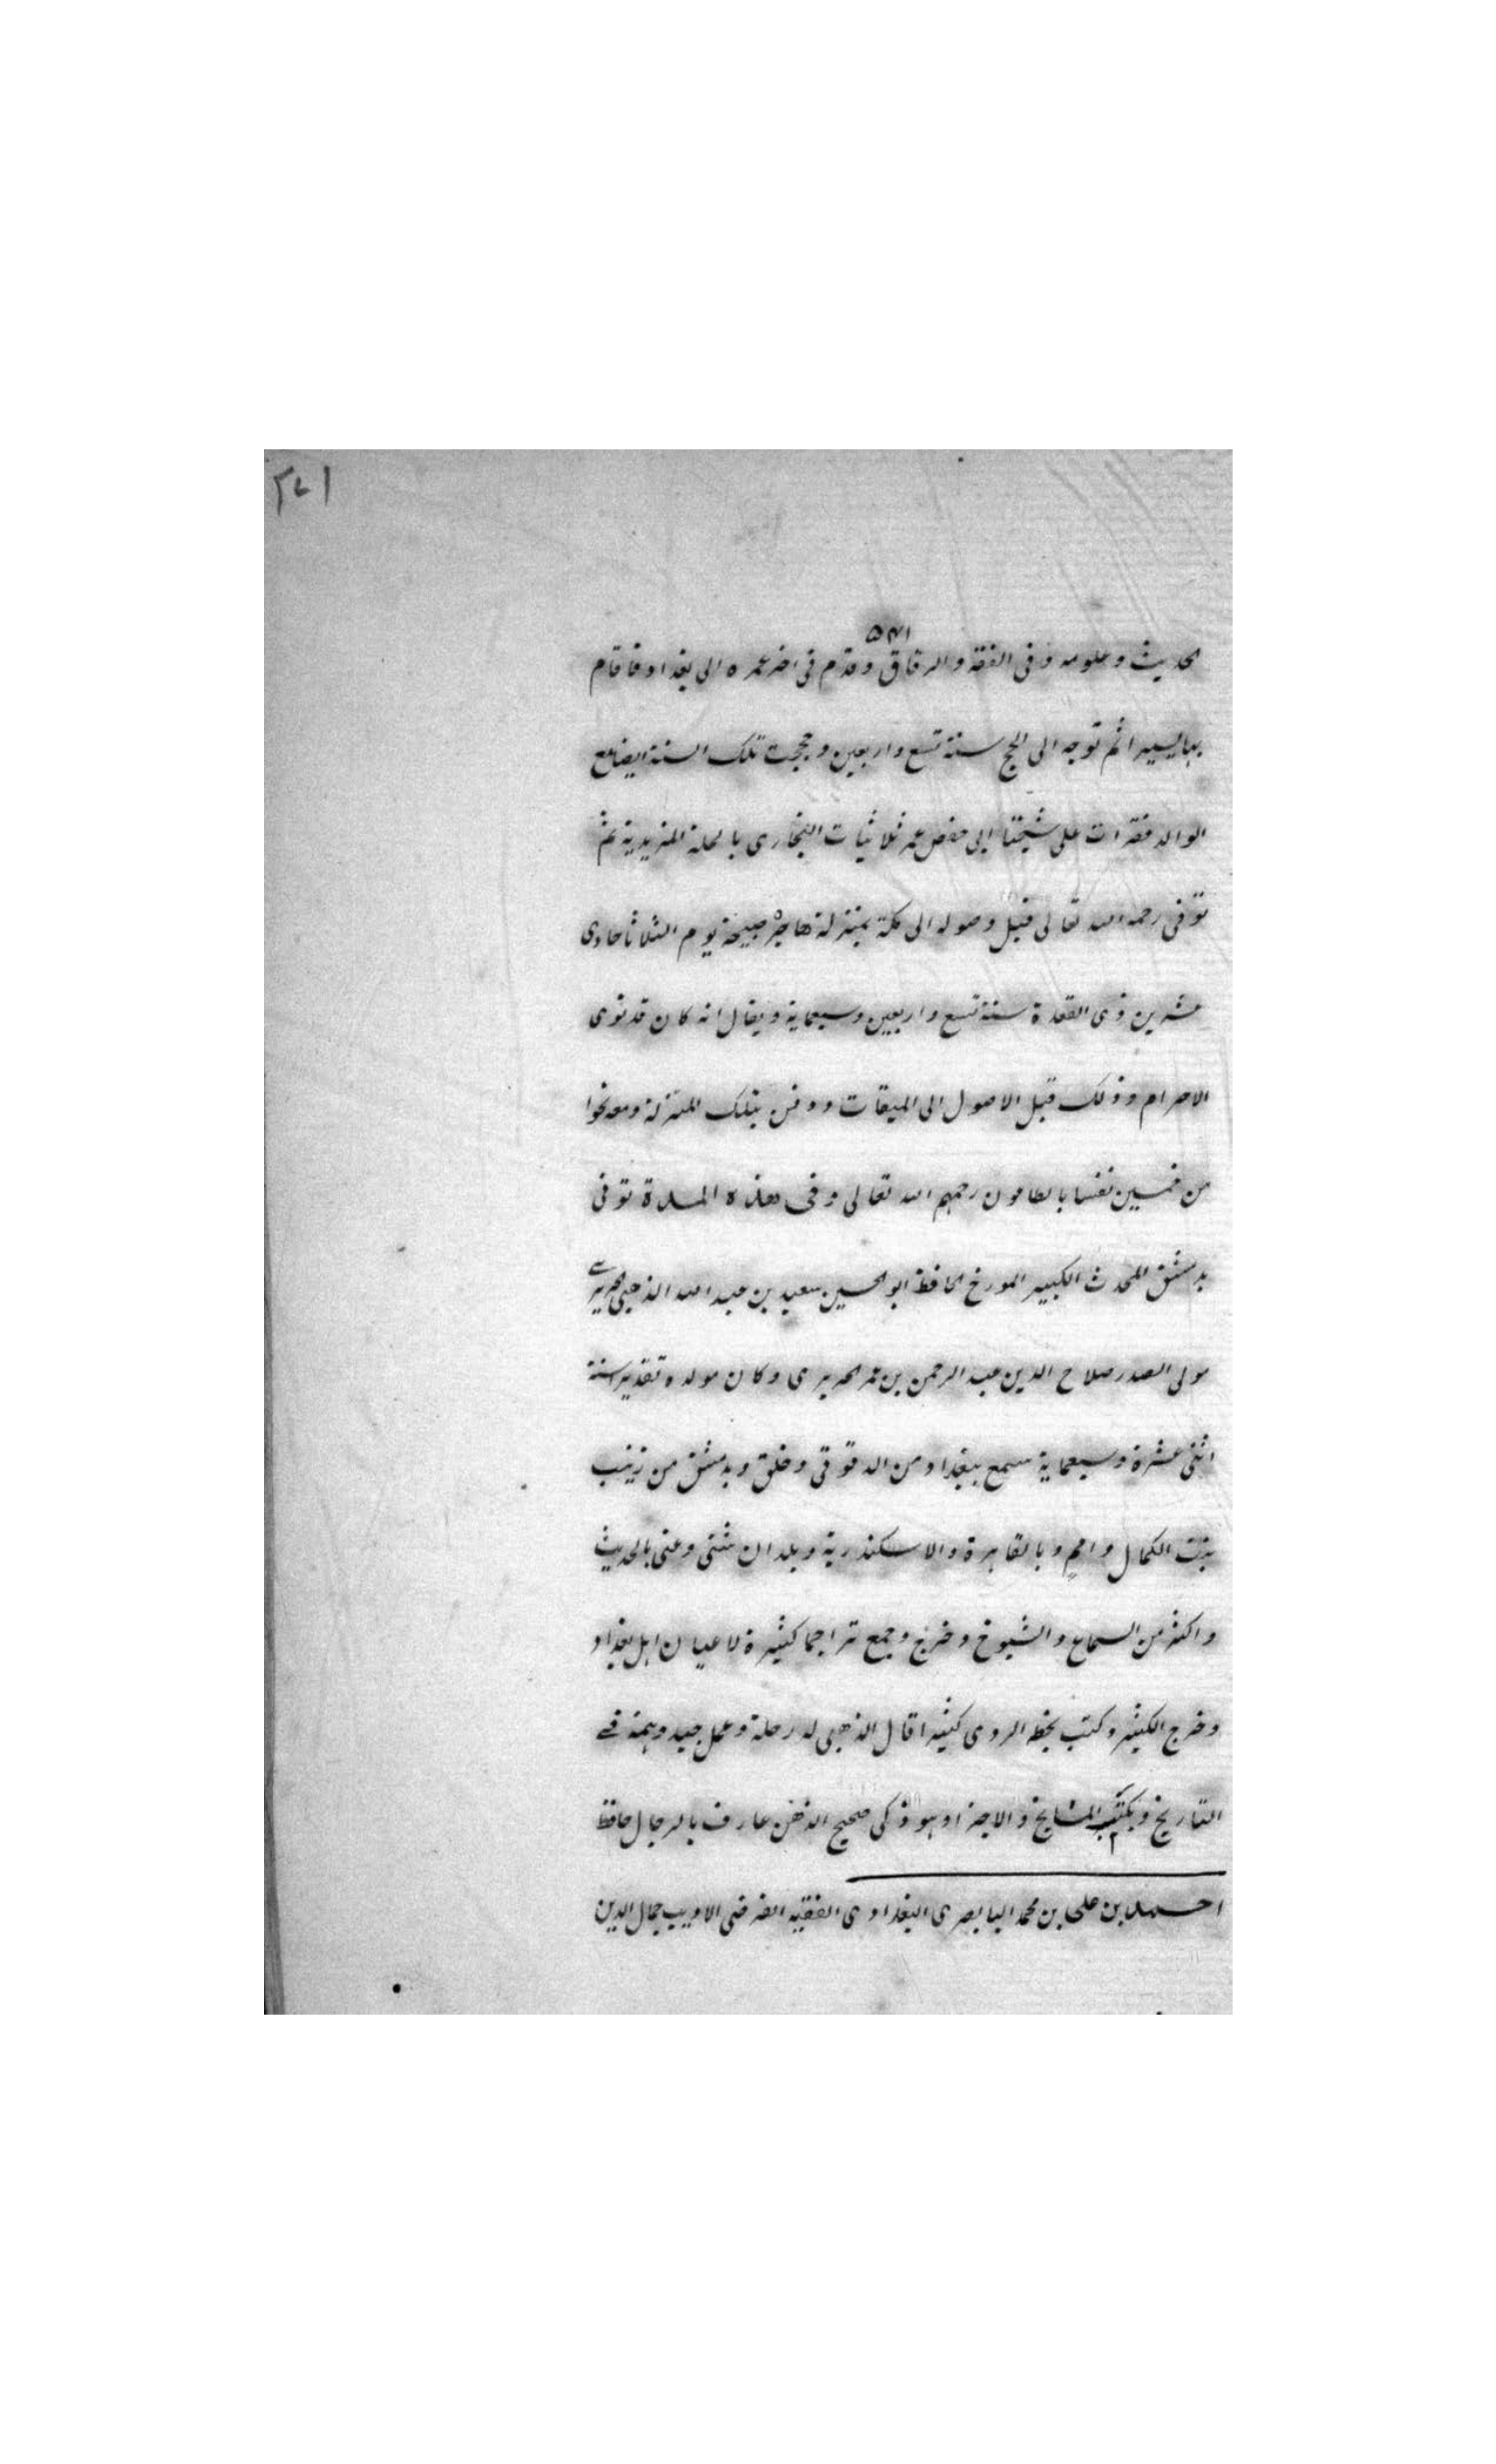 ۵۴۱
الحديث وعلومه وفى الفقه والرقاق وقدم فى اخر عمره الى بغداد فاقام
بها يسيرا ثم توجه الى الحج سنة تسع واربعين وحججت تلك السنة ايضا مع
الوالد فقرات على شيخنا ابى حفص عمر ثلاثيات البخارى بالحلة المزيدية ثم
توفى رحمه الله تعالى قبل وصوله الى مكة بمنزلة حاجر صبيحة يوم الثلاثا حادى
عشرين ذى القعدة سنة تسع واربعين وسبعماية ويقال انه كان قد نوى
الاحرام وذلك قبل الاصول الى الميقات ودفن بتلك المنزلة ومعه نحوا
من خمسين نفسا بالطاعون رحمهم الله تعالى وفى هذه المدة توفى
بدمشق المحدث الكبير المورخ الحافظ ابو الحسين سعيد بن عبد الله الذهبى الحريرى
مولى الصدر صلاح الدين عبد الرحمن بن عمر الحريرى وكان مولده تقديرا سنة
اثنى عشرة وسبعماية سمع ببغداد من الدقوقى وخلق وبدمشق من زينب
بنت الكمال وامم وبالقاهرة والاسكندرية وبلدان شتى وعنى بالحديث
واكثر من السماع والشيوخ وخرج وجمع تراجما كثيرة لاعيان اهل بغداد
وخرج الكثير وكتب بخطه الردى كثيرا قال الذهبى له رحلة وعمل جيد وهمة فى
التاريخ ويكتب المشايخ والاجزا وهو ذكى صحيح الذهن عارف بالرجال حافظ
احمد بن على بن محمد البابصرى البغدادى الفقيه الفرضى الاديب جمال الدين